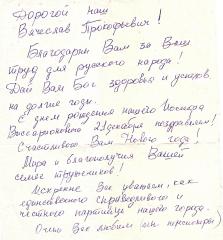 Дорогой наш
Вячеслав Прокофьевич!
Благодарим Вам за Ваш
труд для русского народа!
Дай Вам Бог здоровья и успехов
на долгие годы.
С днем рождения нашего Иосифа
Виссарионовича 21 декабря поздравляем!
Счастливого Вам Нового года!
Мира и благополучия Вашей
семье тружеников!
Искренне Вас уважаем, как
единственного справедливого и
честного
нашего города.
Очень Вас любим
пенсионеры